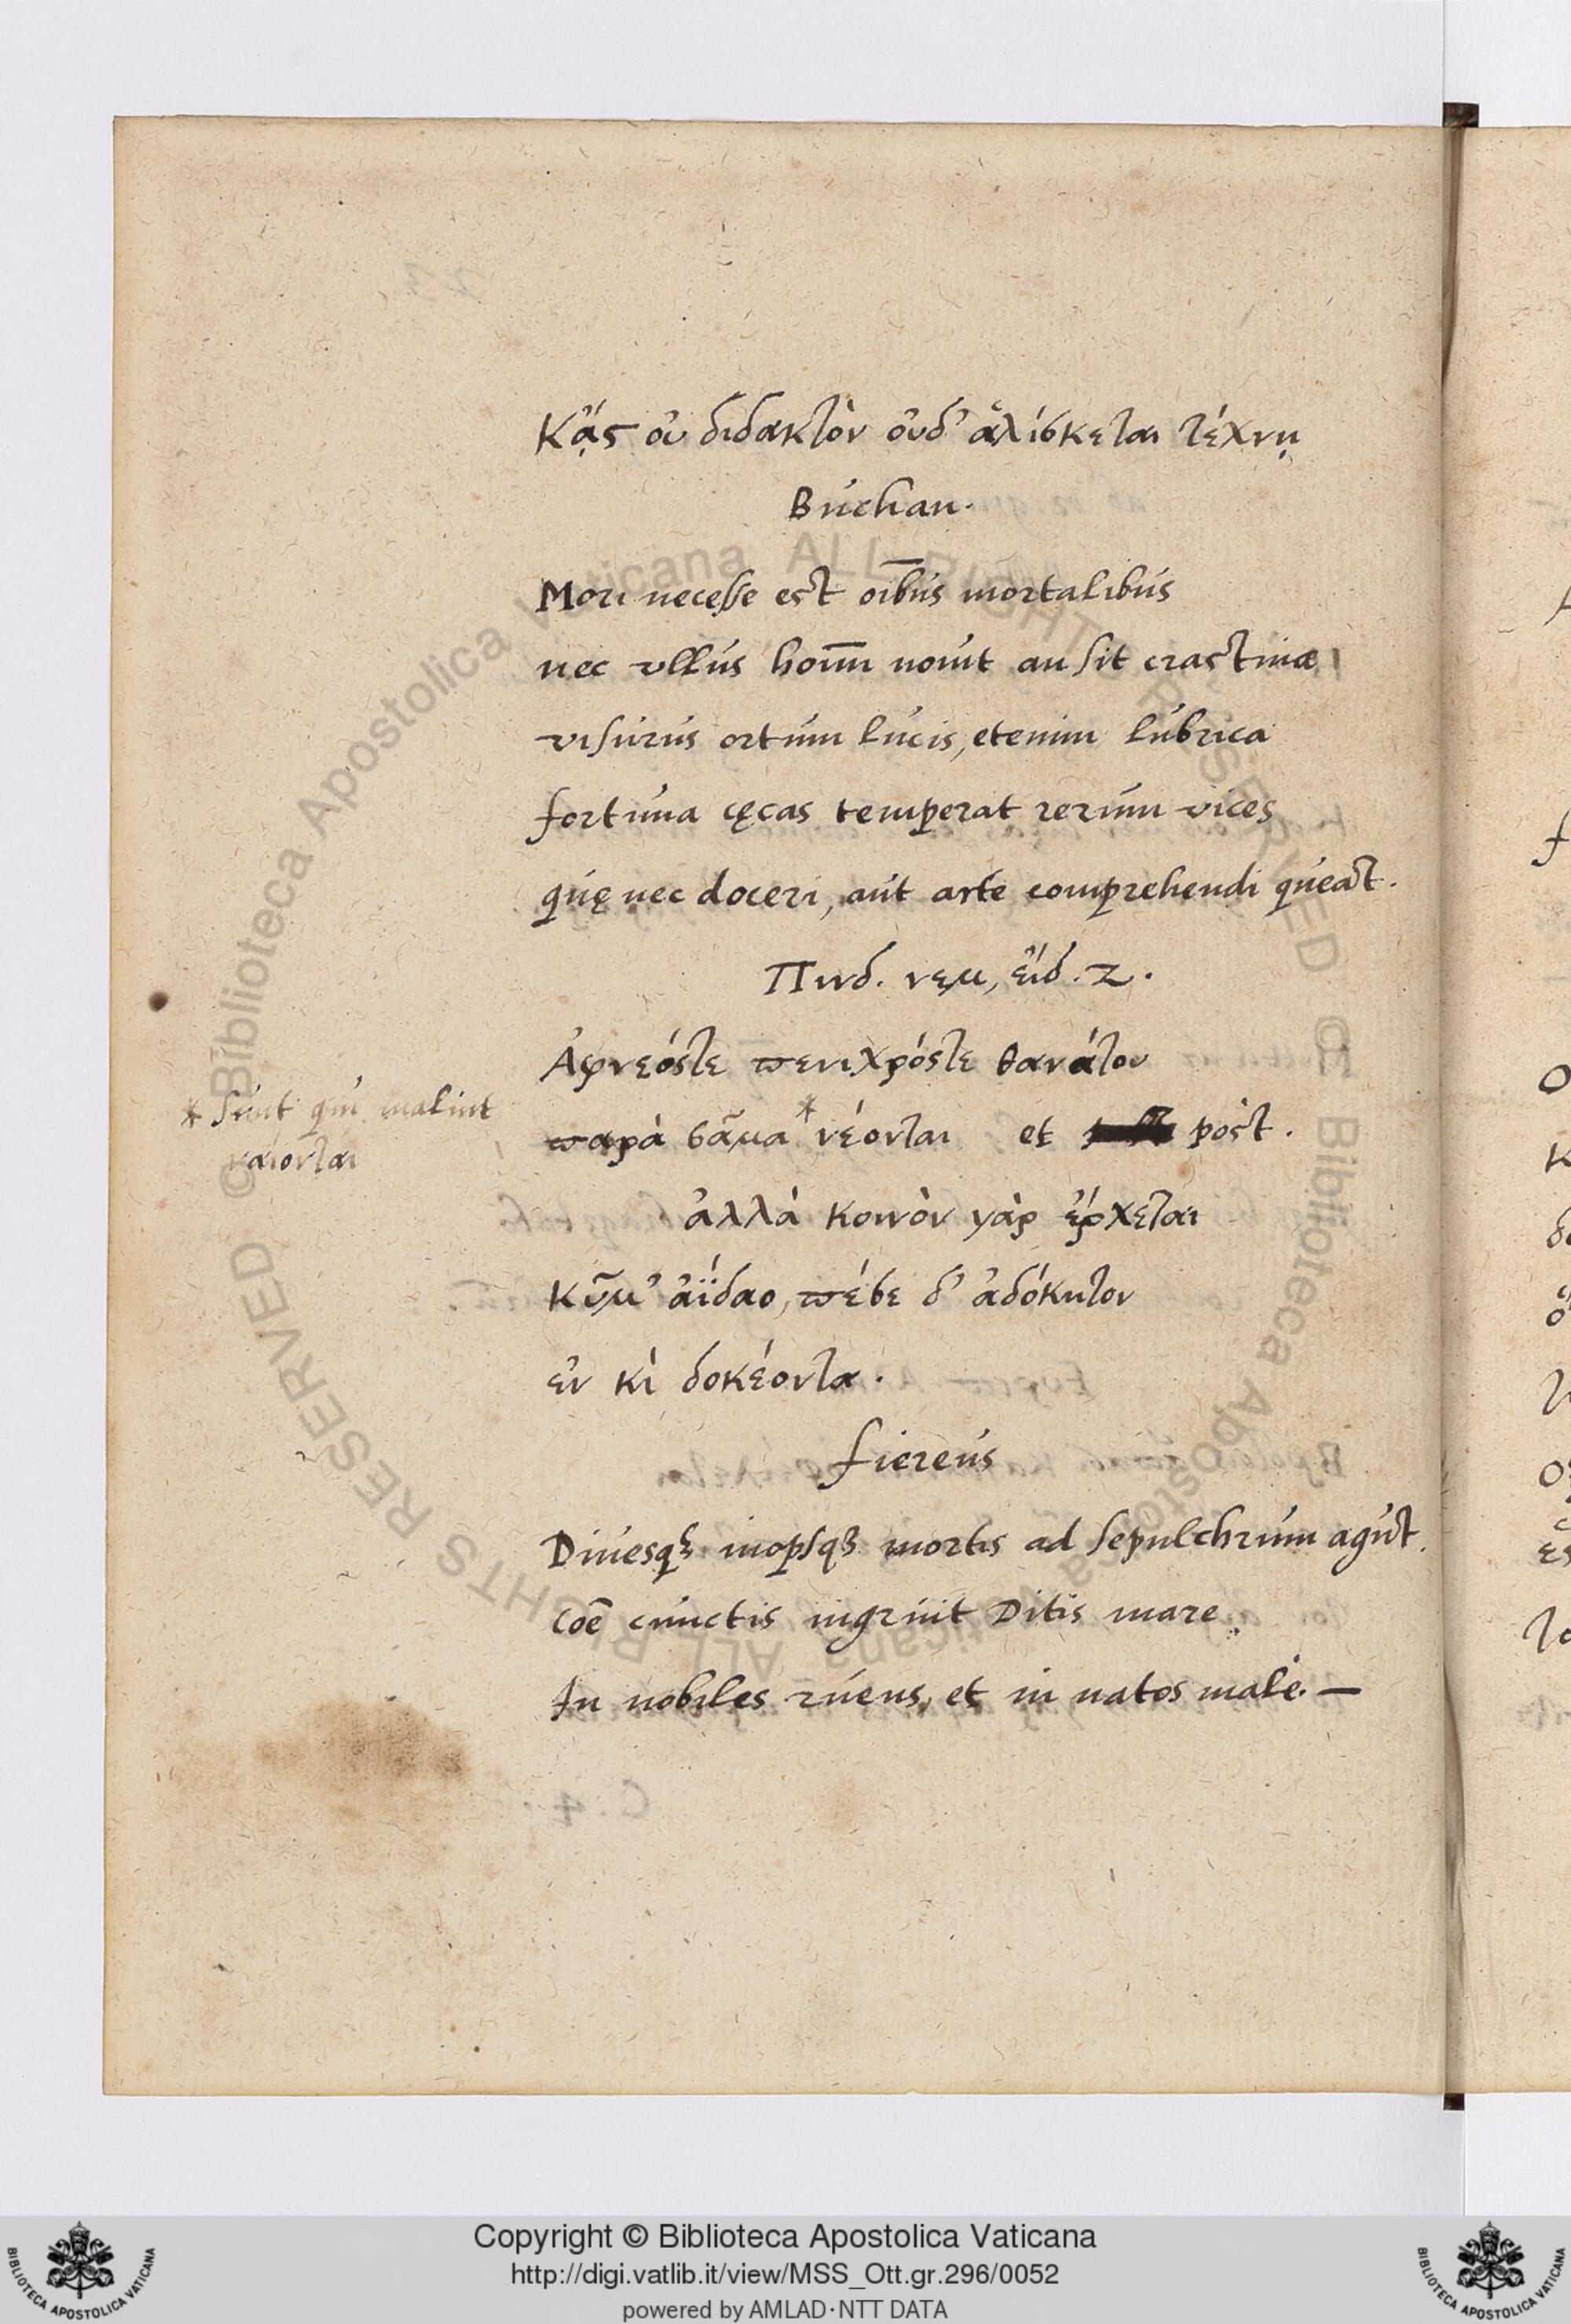 Κᾄς οὐ διδακτὸν οὐδ' ἁλίσκεται τέχνῃ
Buchan.
Mori necesse est oībus mortalibus
nec vllus homī nouit an sit crastinæ
visurus ortum lucis, etenim lubrica
fortuna cęcas temperat rerum vices
quę nec doceri, aut arte comprehendi queat.
Πινδ. νεμ, εἴδ. Ζ.
Ἀφνεόστε πενιχρόστε θανάτου
* Sunt qui malint
ναίονται
παρὰ σᾶμα * νέονται et post.
ἀλλὰ κοινὸν γὰρ ἔρχεται
κῦμ' ἀΐδαο, πέσε δ' ἀδόκητον
ἐν κὶ δοκέοντα.
fiereus
Diuesq; inopsq; mortis ad sepulchrum agūt.
coē cunctis ingruit Ditis mare
In nobiles ruens, et in natos malè. —
Copyright © Biblioteca Apostolica Vaticana
http://digi.vatlib.it/view/MSS_Ott.gr.296/0052
powered by AMLAD·NTT DATA
BIBLIOTECA APOSTOLICA VATICANA
BIBLIOTECA APOSTOLICA VATICANA
© Biblioteca Apostolica Vaticana ALL RIGHTS RESERVED © Biblioteca Apostolica Vaticana ALL RIGHTS RESERVED